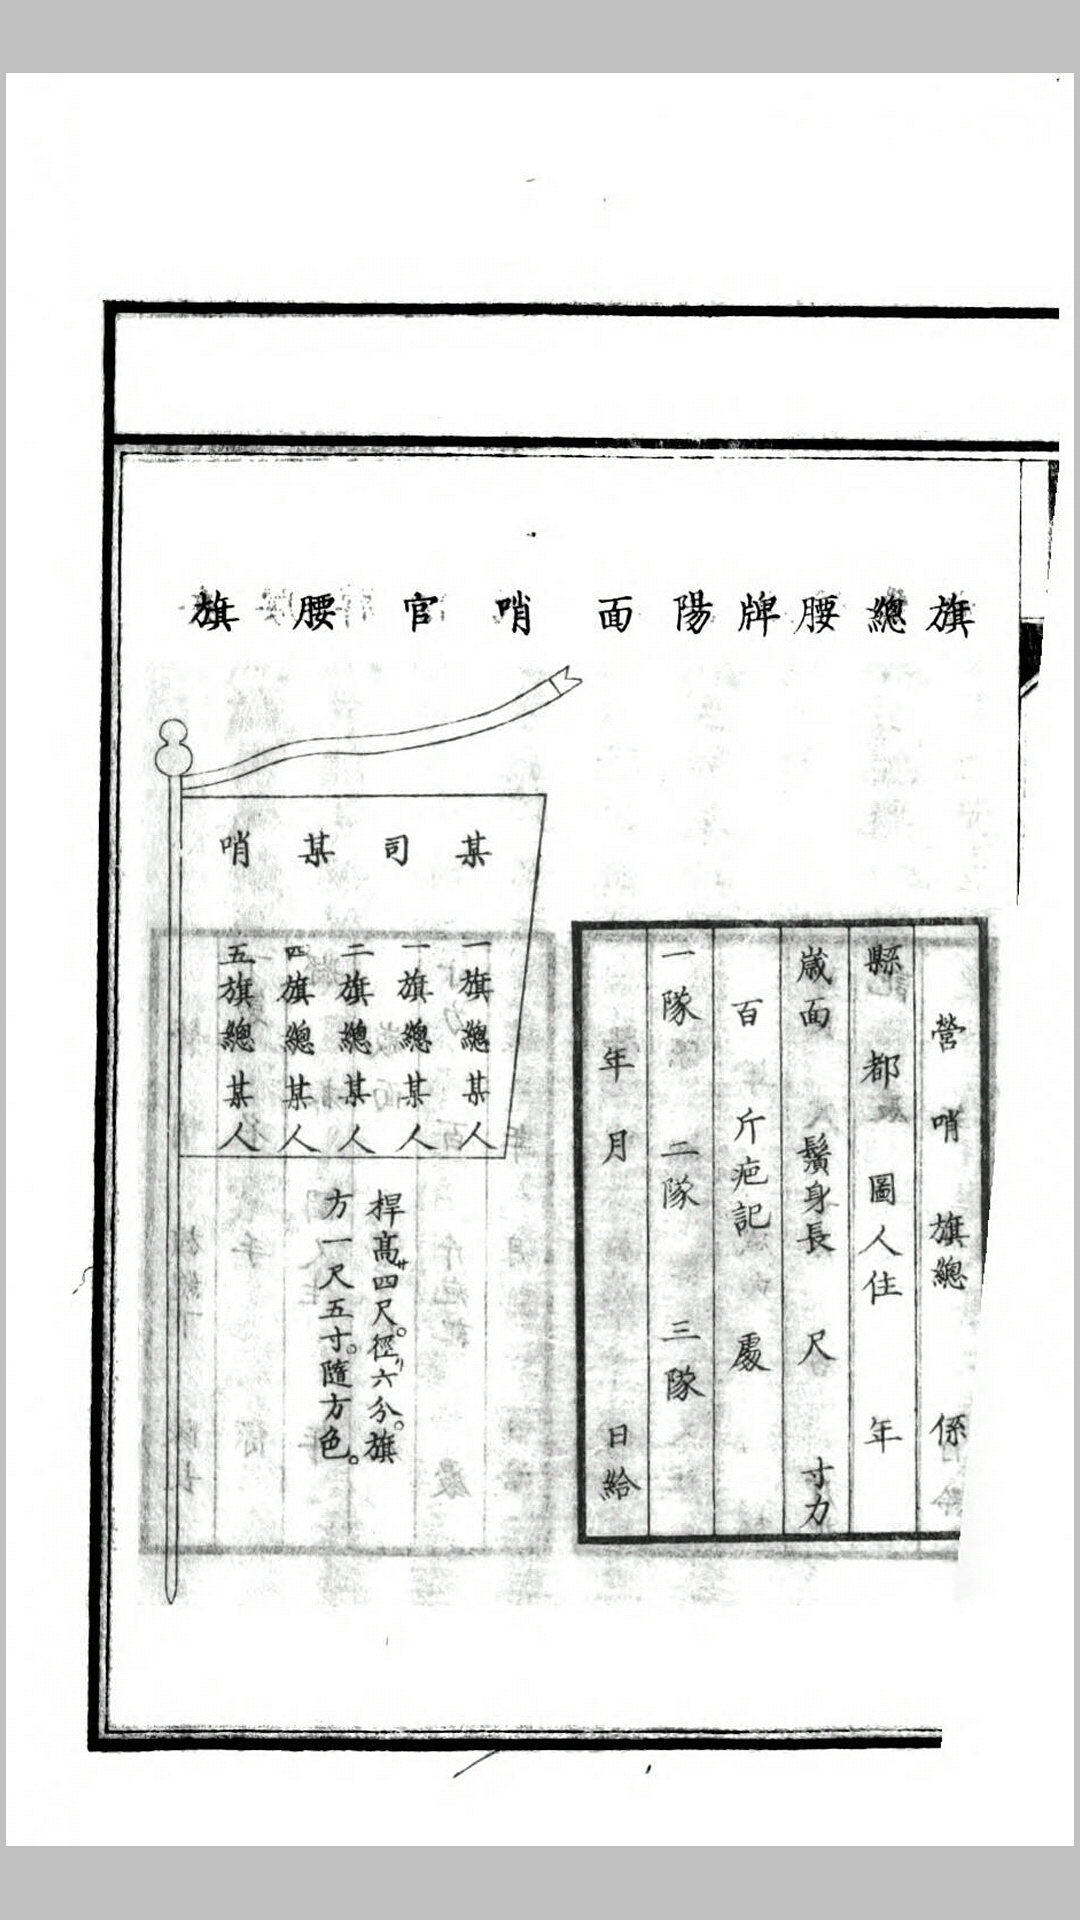 旗總腰牌陽面
營哨旗總係
縣都圖人住年
歲面鬚身長尺寸力
百斤疤記處
一隊二隊三隊
年月日給
哨官腰旗
某司某哨
一旗總某人
一旗總某人
二旗總某人
四旗總某人
五旗總某人
桿高四尺。徑六分。旗
方一尺五寸。隨方色。